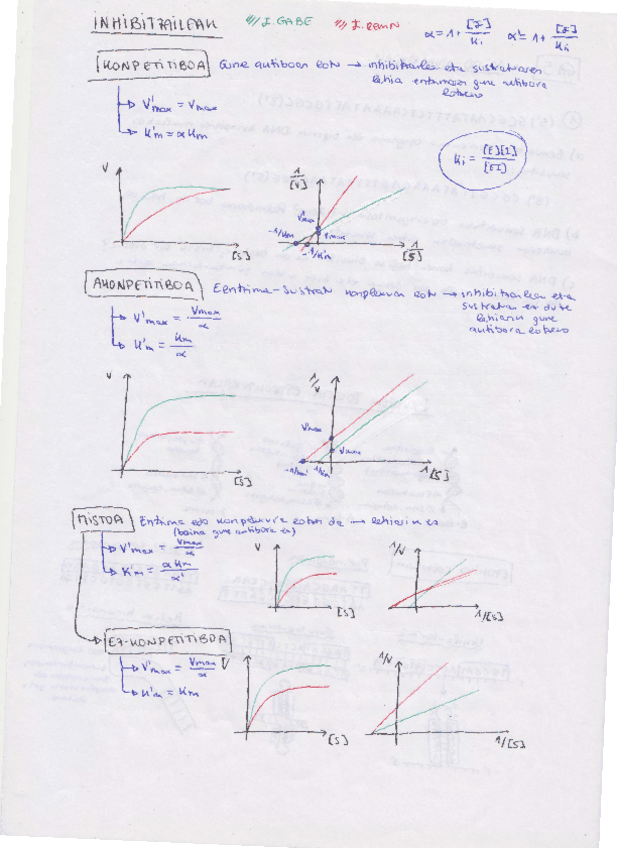 INHIBITZAILEAK
/// I. GABE
/// I. REKIN
α = 1 + [I]/Ki
α' = 1 + [I]/Ki
KONPETITIBOA
Gune aktiboan lotu → inhibitzailea eta sustratuaren
lehia enzimaren gune aktibora
lotzeko
V'max = Vmax
K'm = α Km
Ki = [E][I]/[EI]
V
[S]
1/[V]
V'max
Vmax
-1/Km
-1/K'm
1/[S]
AKONPETITIBOA
Entzima-Sustratu konplexuan lotu → inhibitzailea eta
sustratua ez dute
lehiarik gune
aktibora lotzeko
V'max = Vmax/α
K'm = Km/α
V
[S]
1/V
V'max
Vmax
-1/Km'
1/Km
1/[S]
MISTOA
Entzima edo konplexura lotzen da → lehiarik ez
(baina gune aktibora ez)
V'max = Vmax/α'
K'm = α Km/α'
V
[S]
1/V
1/[S]
EZ-KONPETITIBOA
V'max = Vmax/α
K'm = Km
V
[S]
1/V
1/[S]